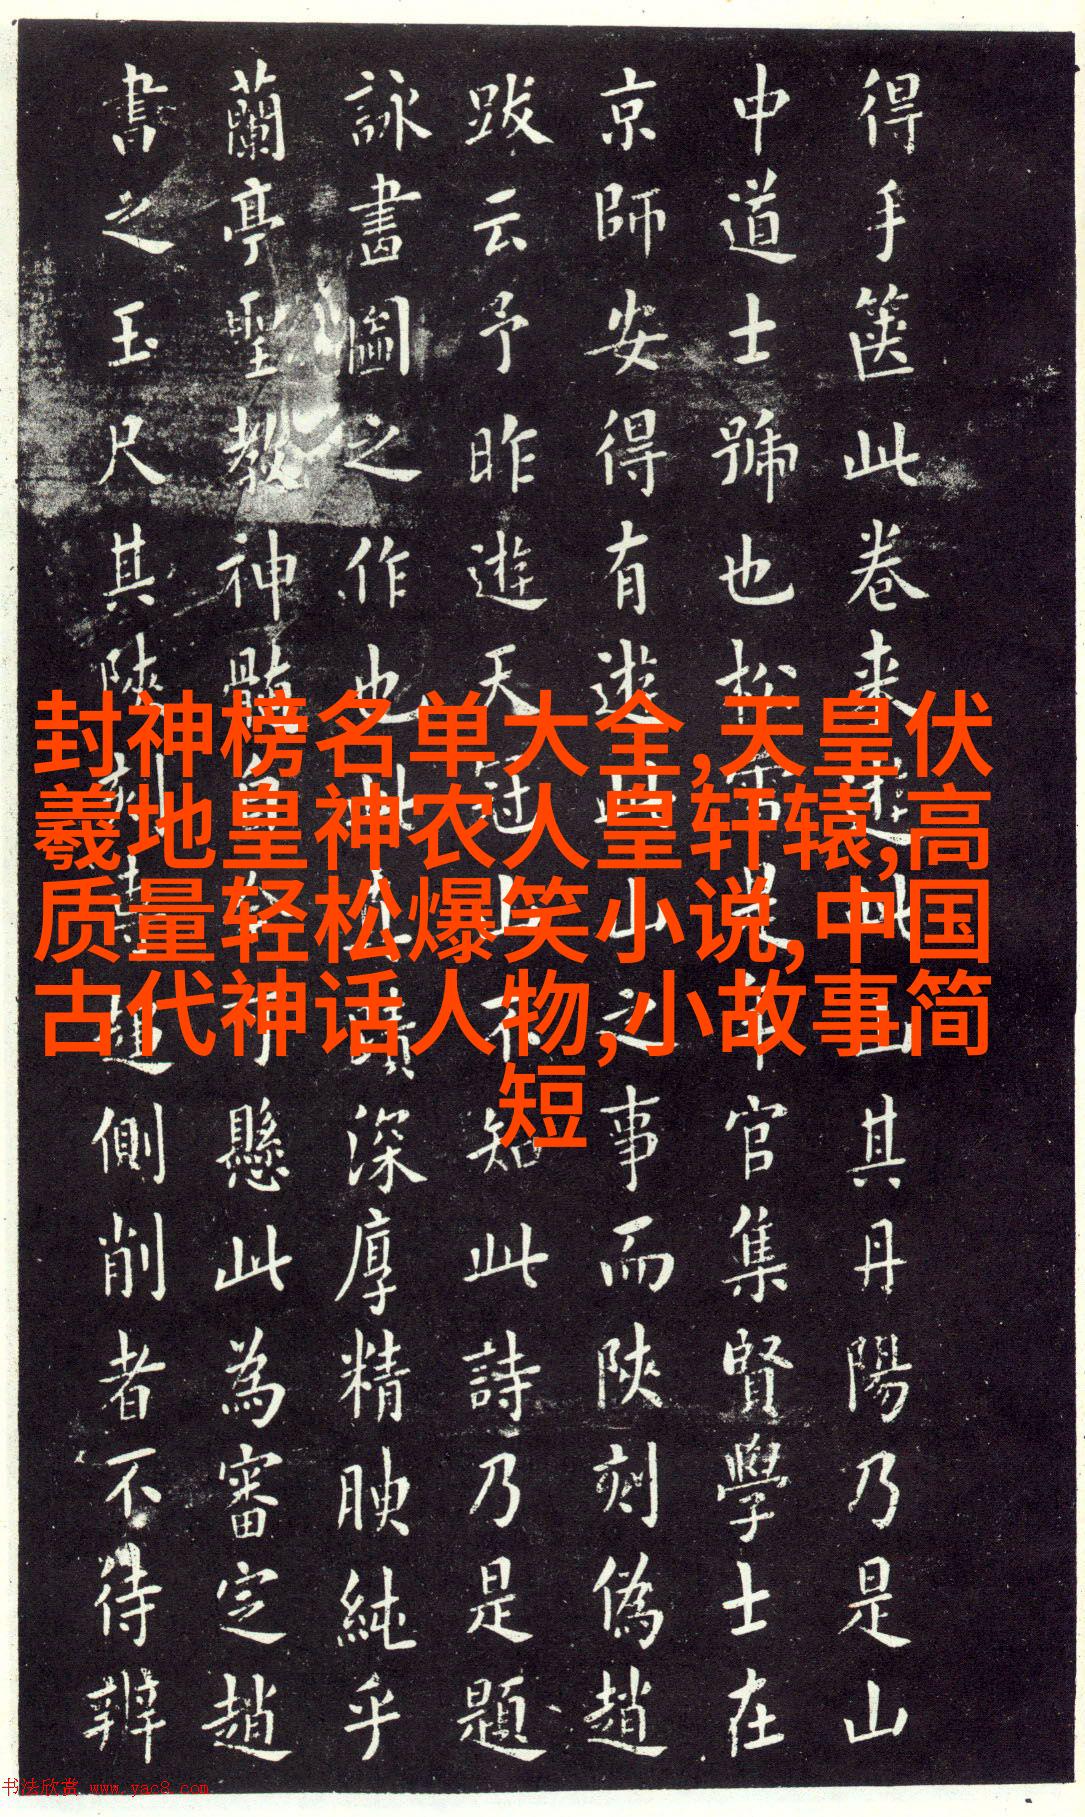 得手箧此卷来
其丹陽乃是山
中道士號也松
官集賢學士在
京師安得有遊此山之事而陜刻偽趙
跋云予昨遊天冠山不知此詩乃是題
詠畫圖之作也此
深厚精腴純乎
蘭亭聖教神
懸此為審定趙
書之玉尺其陜刻
側削者不待辨
封神榜名单大全,天皇伏
羲地皇神农人皇轩辕,高
质量轻松爆笑小说,中国
古代神话人物,小故事简
短
书法欣赏 www.yac8.com